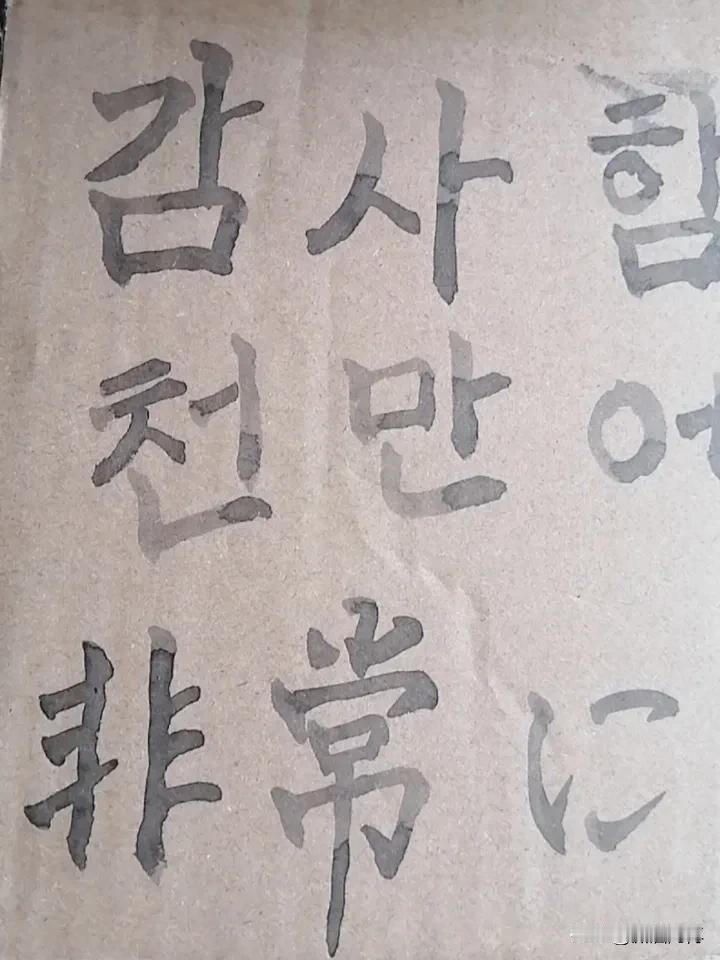 감사함
천만어
非常に